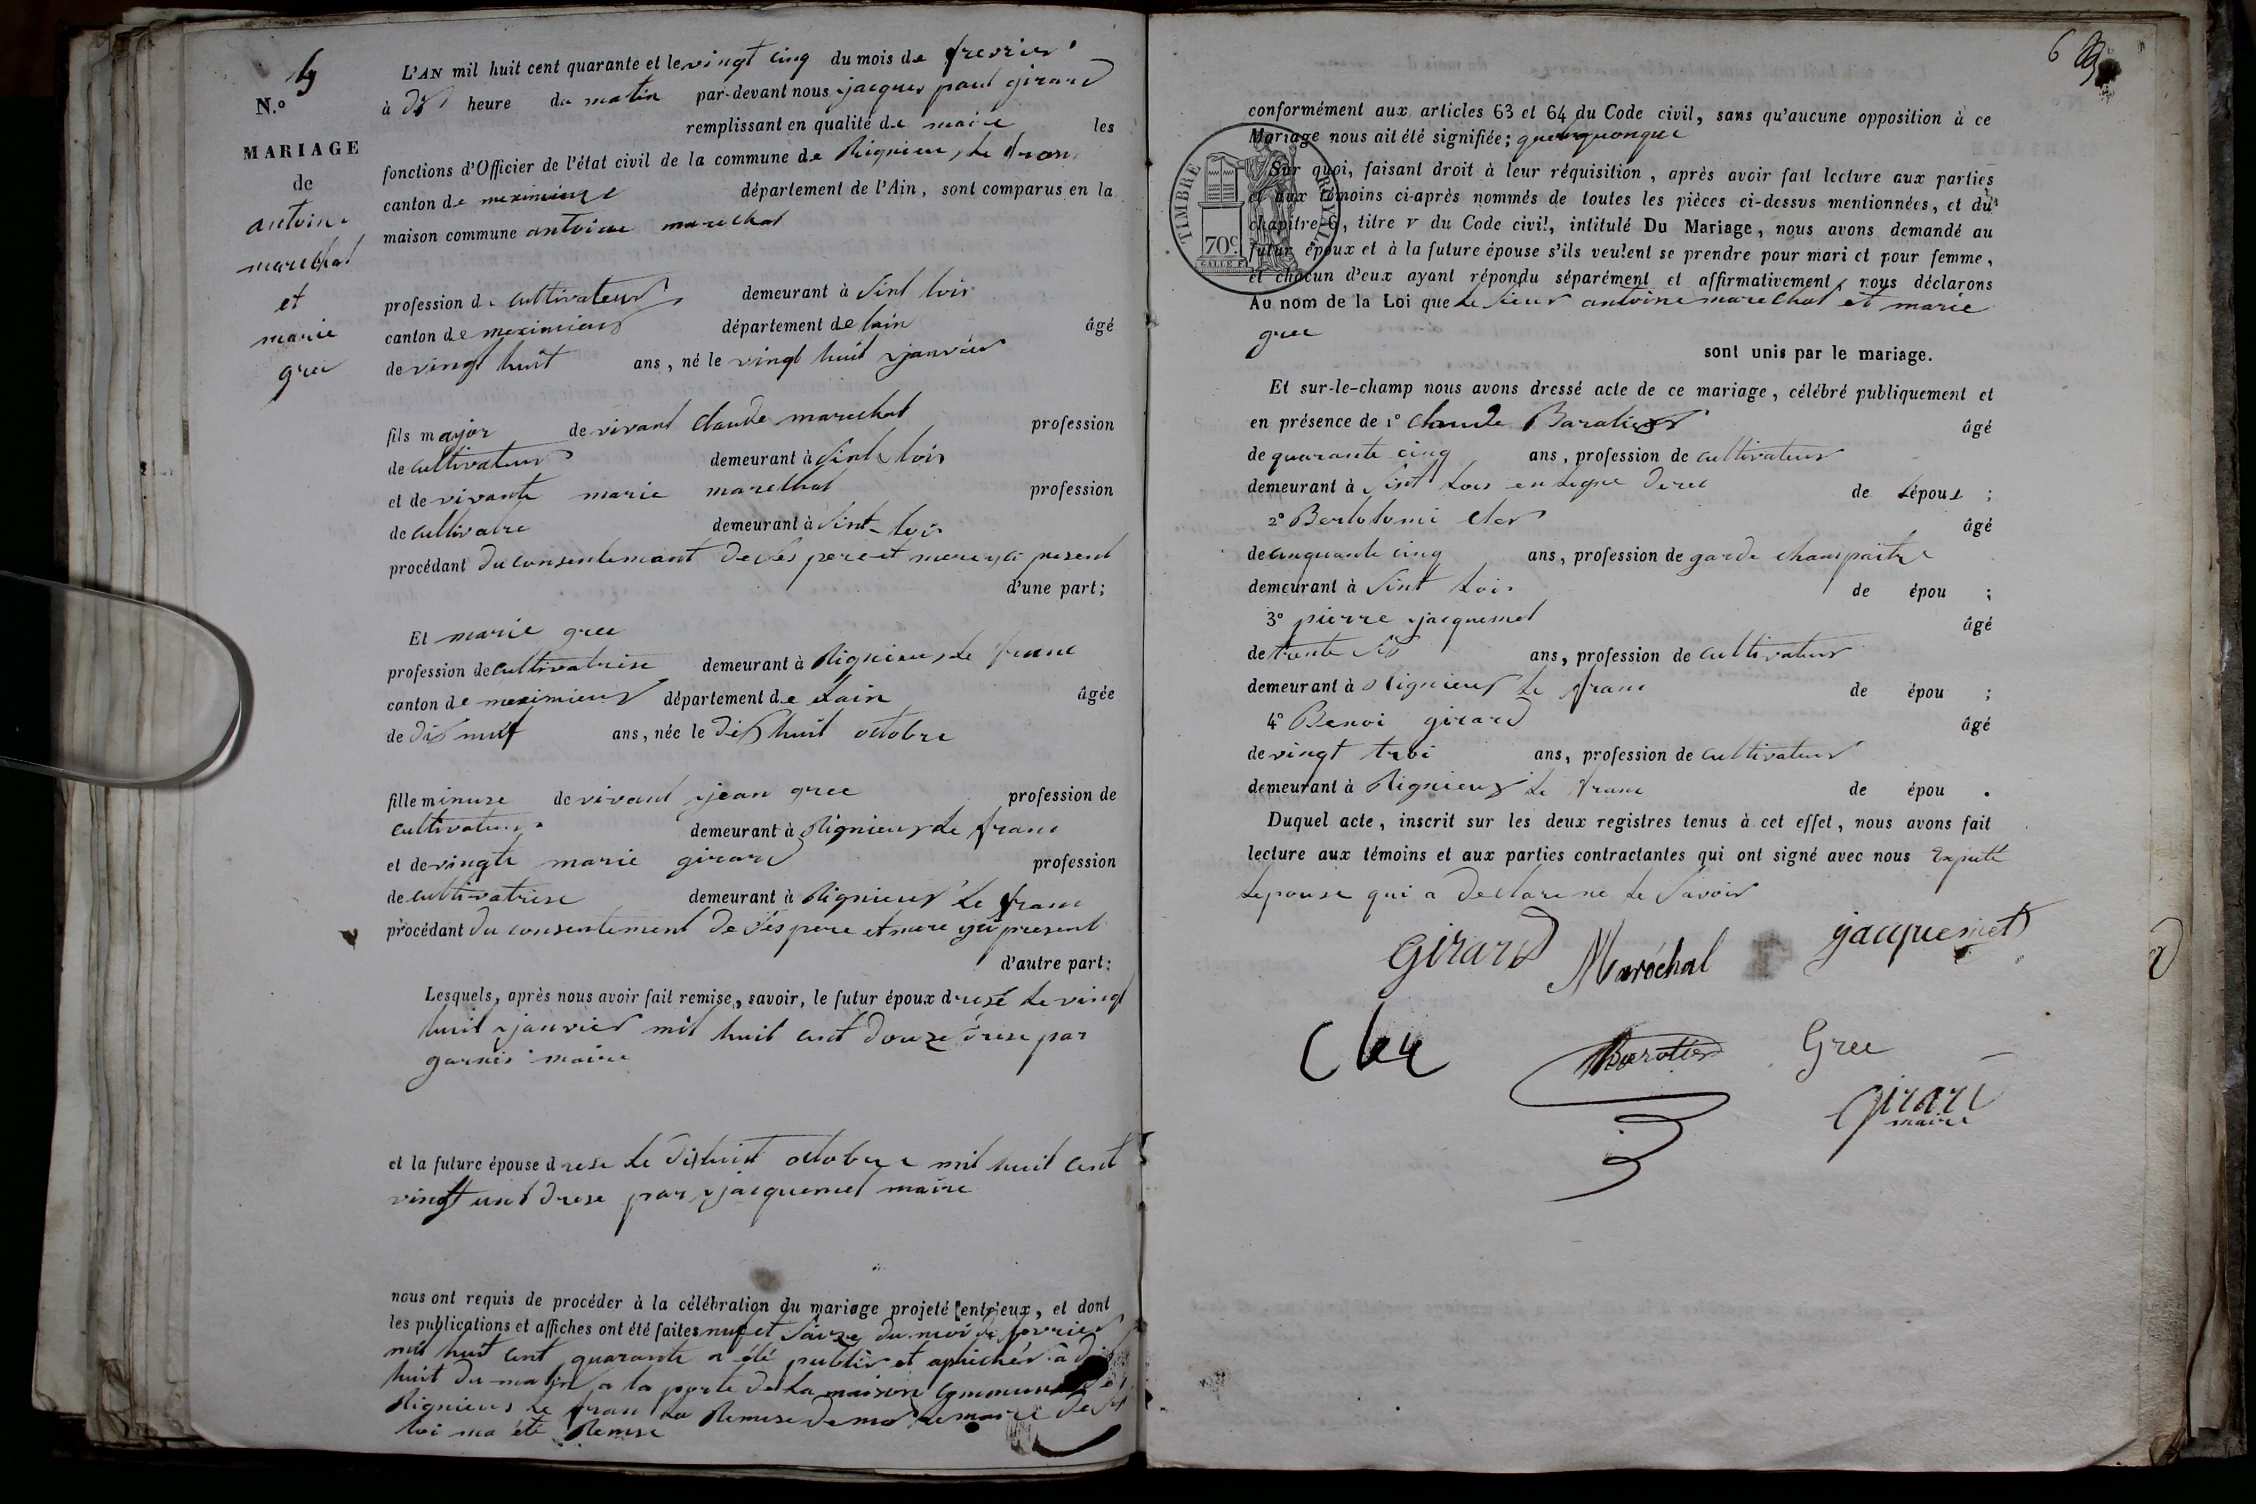 N.º
MARIAGE
de
antoine
marechal
et
marie
gree
L'AN mil huit cent quarante et le vingt cinq du mois de frevrier
à dis heure du matin par-devant nous jacques paul girard
remplissant en qualité de maire les
fonctions d'Officier de l'état civil de la commune de Rignieux le franc
canton de meximieux département de l'Ain, sont comparus en la
maison commune antoine marechal
profession de cultivateur demeurant à Sint lois
canton de meximieux département de lain âgé
de vingt huit ans, né le vingt huit janvier
fils major de vivant Claude marechal profession
de cultivateur demeurant à Sint lois
et de vivante marie marechal profession
de cultivatre demeurant à Sint lois
procédant du consentemant de ses pere et mere ysi present
d'une part;
Et marie gree
profession de cultivatrise demeurant à Rignieux le franc
canton de meximieux département de lain âgée
de dis nuif ans, née le dis huit octobre
fille minure de vivant jean gree profession de
cultivateur demeurant à Rignieux le franc
et de vingte marie girard profession
de cultivatrise demeurant à Rignieux le franc
procédant du consentement de ses pere et mere ysi present
d'autre part:
Lesquels, après nous avoir fait remise, savoir, le futur époux drese le vingt
huit janvier mil huit cent douze drese par
garnis maire
et la future épouse drese le dishuit octobre mil huit cent
vingt unt drese par jacquemet maire
nous ont requis de procéder à la célébration du mariage projeté entr'eux, et dont
les publications et affiches ont été faites nuf et saize du moi de fevrier
mil huit cent quarante a été publié et aphichés à
huit du matin a la porte de la maison Commune de
Rignieux le fran la Remise de mos le maire de St
loi ma été Remise
6
conformément aux articles 63 et 64 du Code civil, sans qu'aucune opposition à ce
Mariage nous ait été signifiée; quelquonque
TIMBRE ROYAL
70c
Sur quoi, faisant droit à leur réquisition, après avoir fait lecture aux parties
et aux témoins ci-après nommés de toutes les pièces ci-dessus mentionnées, et du
chapitre 6, titre v du Code civil, intitulé Du Mariage, nous avons demandé au
futur époux et à la future épouse s'ils veulent se prendre pour mari et pour femme,
et chacun d'eux ayant répondu séparément et affirmativement, nous déclarons
Au nom de la Loi que le sieur antoine marechal et marie
gree
sont unis par le mariage.
Et sur-le-champ nous avons dressé acte de ce mariage, célébré publiquement et
en présence de 1º Claude Baratier âgé
de quarante cinq ans, profession de cultivateur
demeurant à Sint lois en legne direc de lépoux;
2º Bertolomi Cler âgé
de cinquante cinq ans, profession de garde champaitre
demeurant à Sint lois de épou;
3º pierre jacquemet âgé
de trente sis ans, profession de cultivateur
demeurant à Rignieux le franc de épou;
4º Benoi girard âgé
de vingt troi ans, profession de cultivateur
demeurant à Rignieux le franc de épou.
Duquel acte, inscrit sur les deux registres tenus à cet effet, nous avons fait
lecture aux témoins et aux parties contractantes qui ont signé avec nous
lepouse qui a declare ne le savoir
girard Maréchal jacquemet
Cler Baratier Gree
Girard
maire